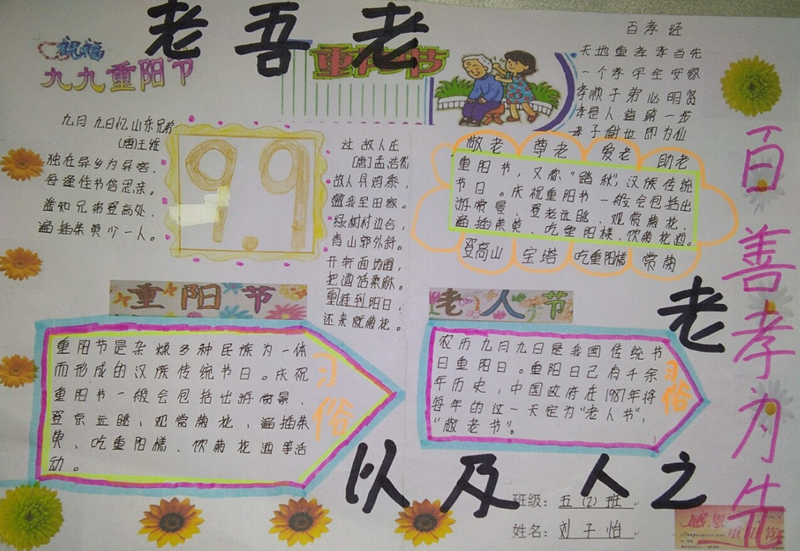 老吾老
祝福
九九重阳节
重阳节
百孝经
天地重孝孝当先
一个孝字全家安
孝顺子弟必明贤
孝是人道第一步
孝子谢世即为仙
九月九日忆山东兄弟
[唐]王维
独在异乡为异客,
每逢佳节倍思亲,
遥知兄弟登高处,
遍插茱萸少一人。
99
过故人庄
[唐]孟浩然
故人具鸡黍,
邀我至田家。
绿树村边合,
青山郭外斜。
开轩面场圃,
把酒话桑麻。
重阳到日
还来就菊花。
敬老 尊老 爱老 助老
重阳节,又称“踏秋”,汉族传统
节日。庆祝重阳节一般会包括出
游赏景、登高远眺、观赏菊花、
遍插茱萸、吃重阳糕、饮菊花酒。
登高山 宝塔 吃重阳糕 赏菊
百善孝为先
重阳节
重阳节是杂糅多种民族为一体
而形成的汉族传统节日。庆祝
重阳节一般会包括出游赏景、
登高远眺、观赏菊花、遍插茱
萸、吃重阳糕、饮菊花酒等活
动。
习俗
老人节
农历九月九日是我国传统节
日重阳日。重阳日已有千余
年历史,中国政府在1987年将
每年的这一天定为“老人节”,
“敬老节”。
习俗
老
以及人之
班级:五(2)班
姓名:刘子怡
感恩